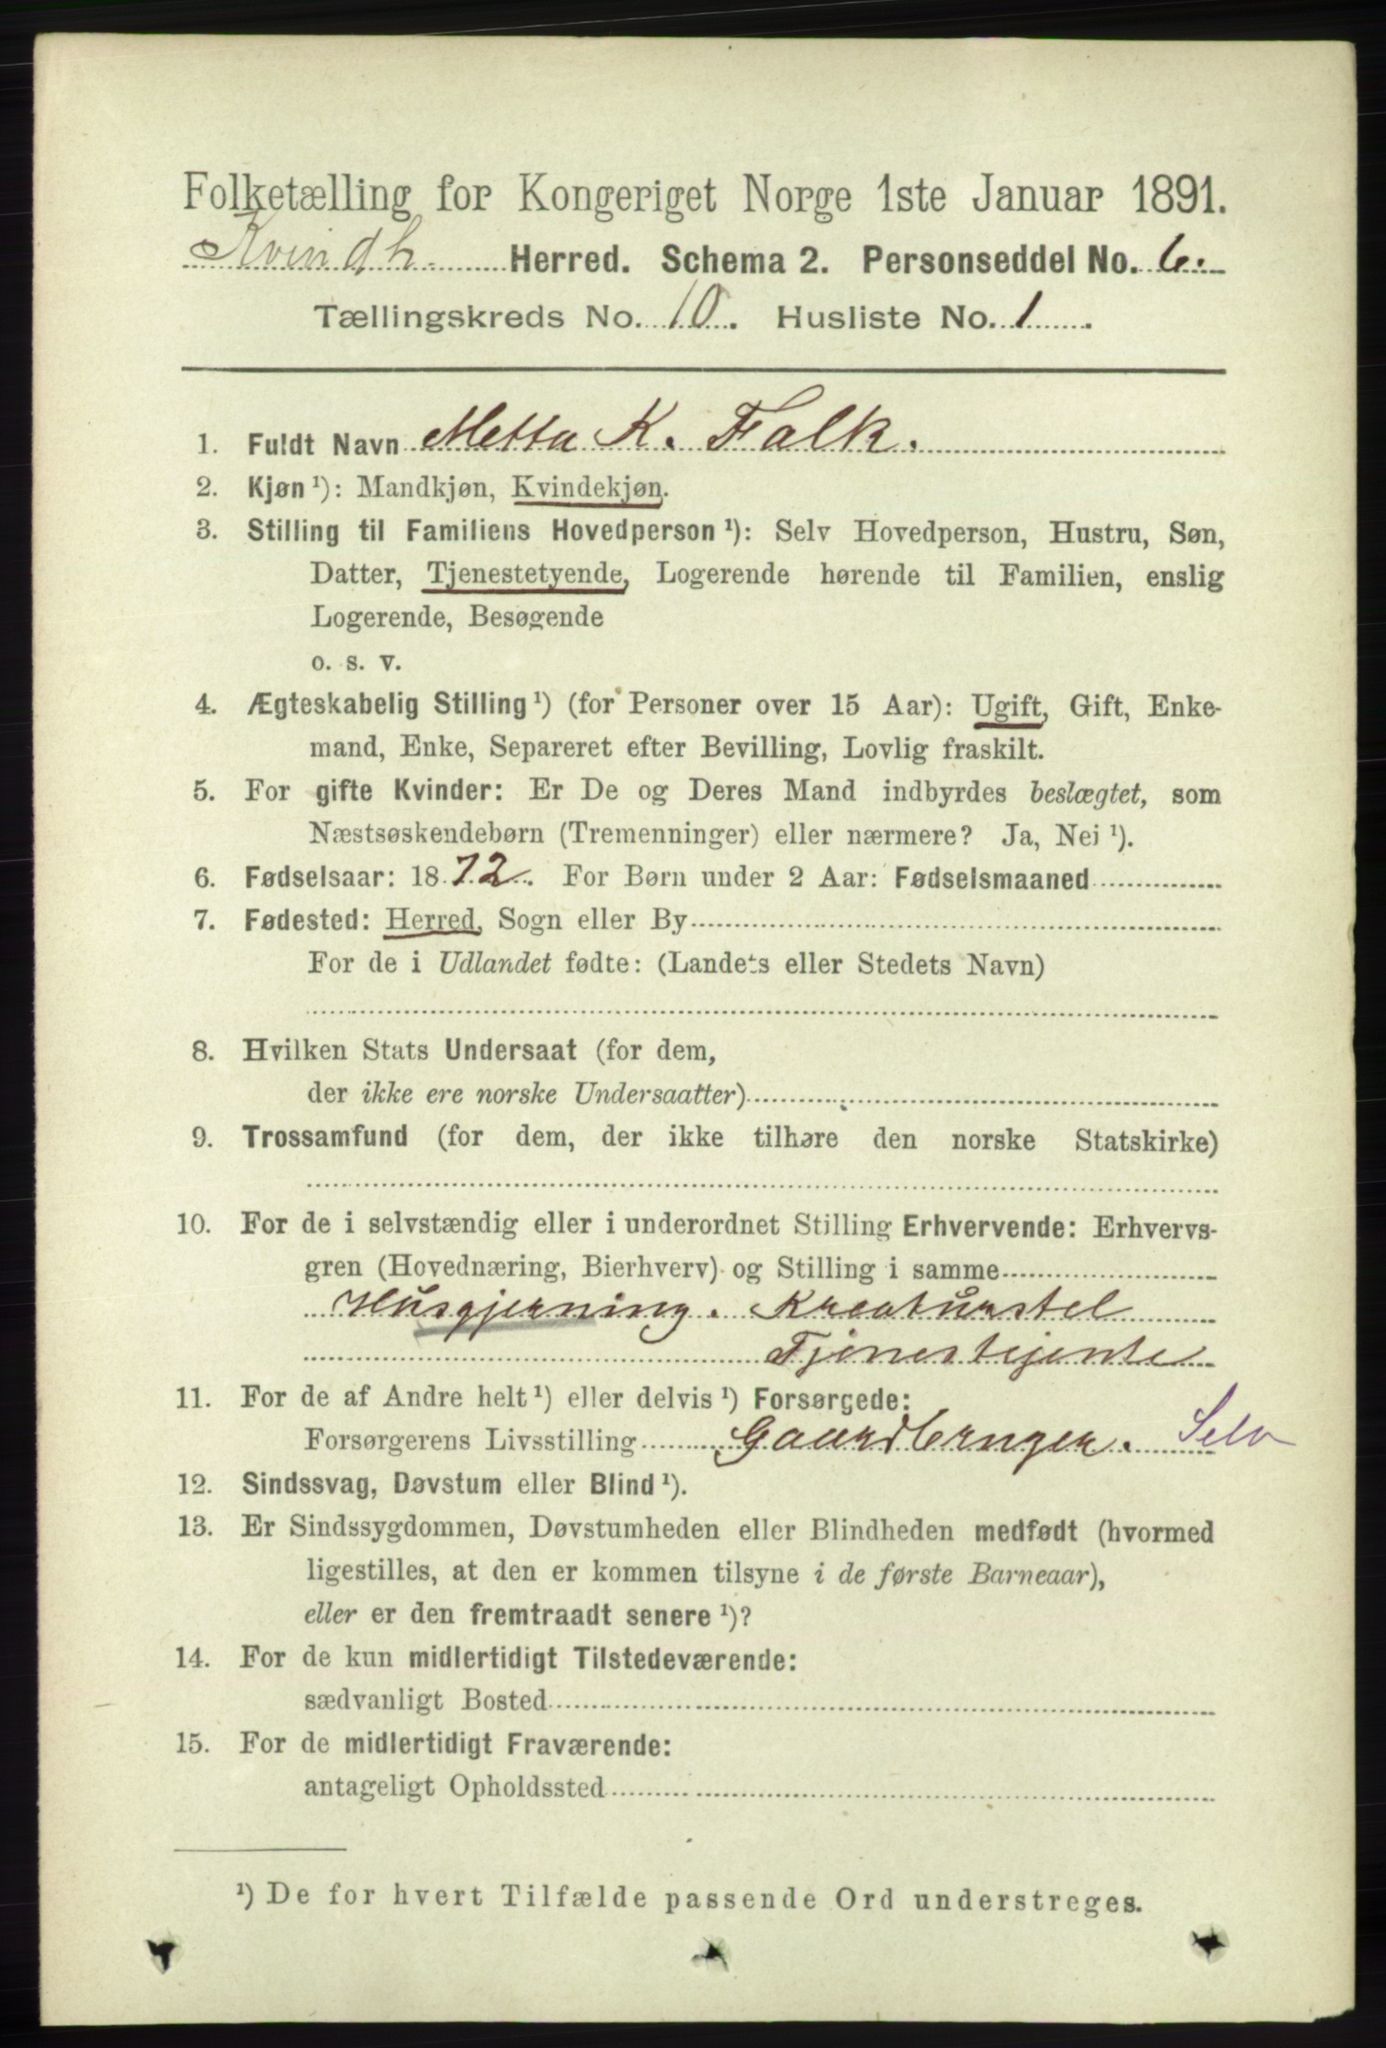 Folketælling for Kongeriget Norge 1ste Januar 1891.
Kvindh. Herred. Schema 2. Personseddel No. 6.
Tællingskreds No. 10. Husliste No. 1
1. Fuldt Navn Metta K. Falk.
2. Kjøn ¹): Mandkjøn, Kvindekjøn.
3. Stilling til Familiens Hovedperson ¹): Selv Hovedperson, Hustru, Søn,
Datter, Tjenestetyende, Logerende hørende til Familien, enslig
Logerende, Besøgende
o. s. v.
4. Ægteskabelig Stilling ¹) (for Personer over 15 Aar): Ugift, Gift, Enke-
mand, Enke, Separeret efter Bevilling, Lovlig fraskilt.
5. For gifte Kvinder: Er De og Deres Mand indbyrdes beslægtet, som
Næstsøskendebørn (Tremenninger) eller nærmere? Ja, Nei ¹).
6. Fødselsaar: 1872. For Børn under 2 Aar: Fødselsmaaned
7. Fødested: Herred, Sogn eller By
For de i Udlandet fødte: (Landets eller Stedets Navn)
8. Hvilken Stats Undersaat (for dem,
der ikke ere norske Undersaatter)
9. Trossamfund (for dem, der ikke tilhøre den norske Statskirke)
10. For de i selvstændig eller i underordnet Stilling Erhvervende: Erhvervs-
gren (Hovednæring, Bierhverv) og Stilling i samme
Husgjerning. Kreaturstel
Tjenestejente
11. For de af Andre helt ¹) eller delvis ¹) Forsørgede:
Forsørgerens Livsstilling Gaardbruger. Selv
12. Sindssvag, Døvstum eller Blind ¹).
13. Er Sindssygdommen, Døvstumheden eller Blindheden medfødt (hvormed
ligestilles, at den er kommen tilsyne i de første Barneaar),
eller er den fremtraadt senere ¹)?
14. For de kun midlertidigt Tilstedeværende:
sædvanligt Bosted
15. For de midlertidigt Fraværende:
antageligt Opholdssted
¹) De for hvert Tilfælde passende Ord understreges.